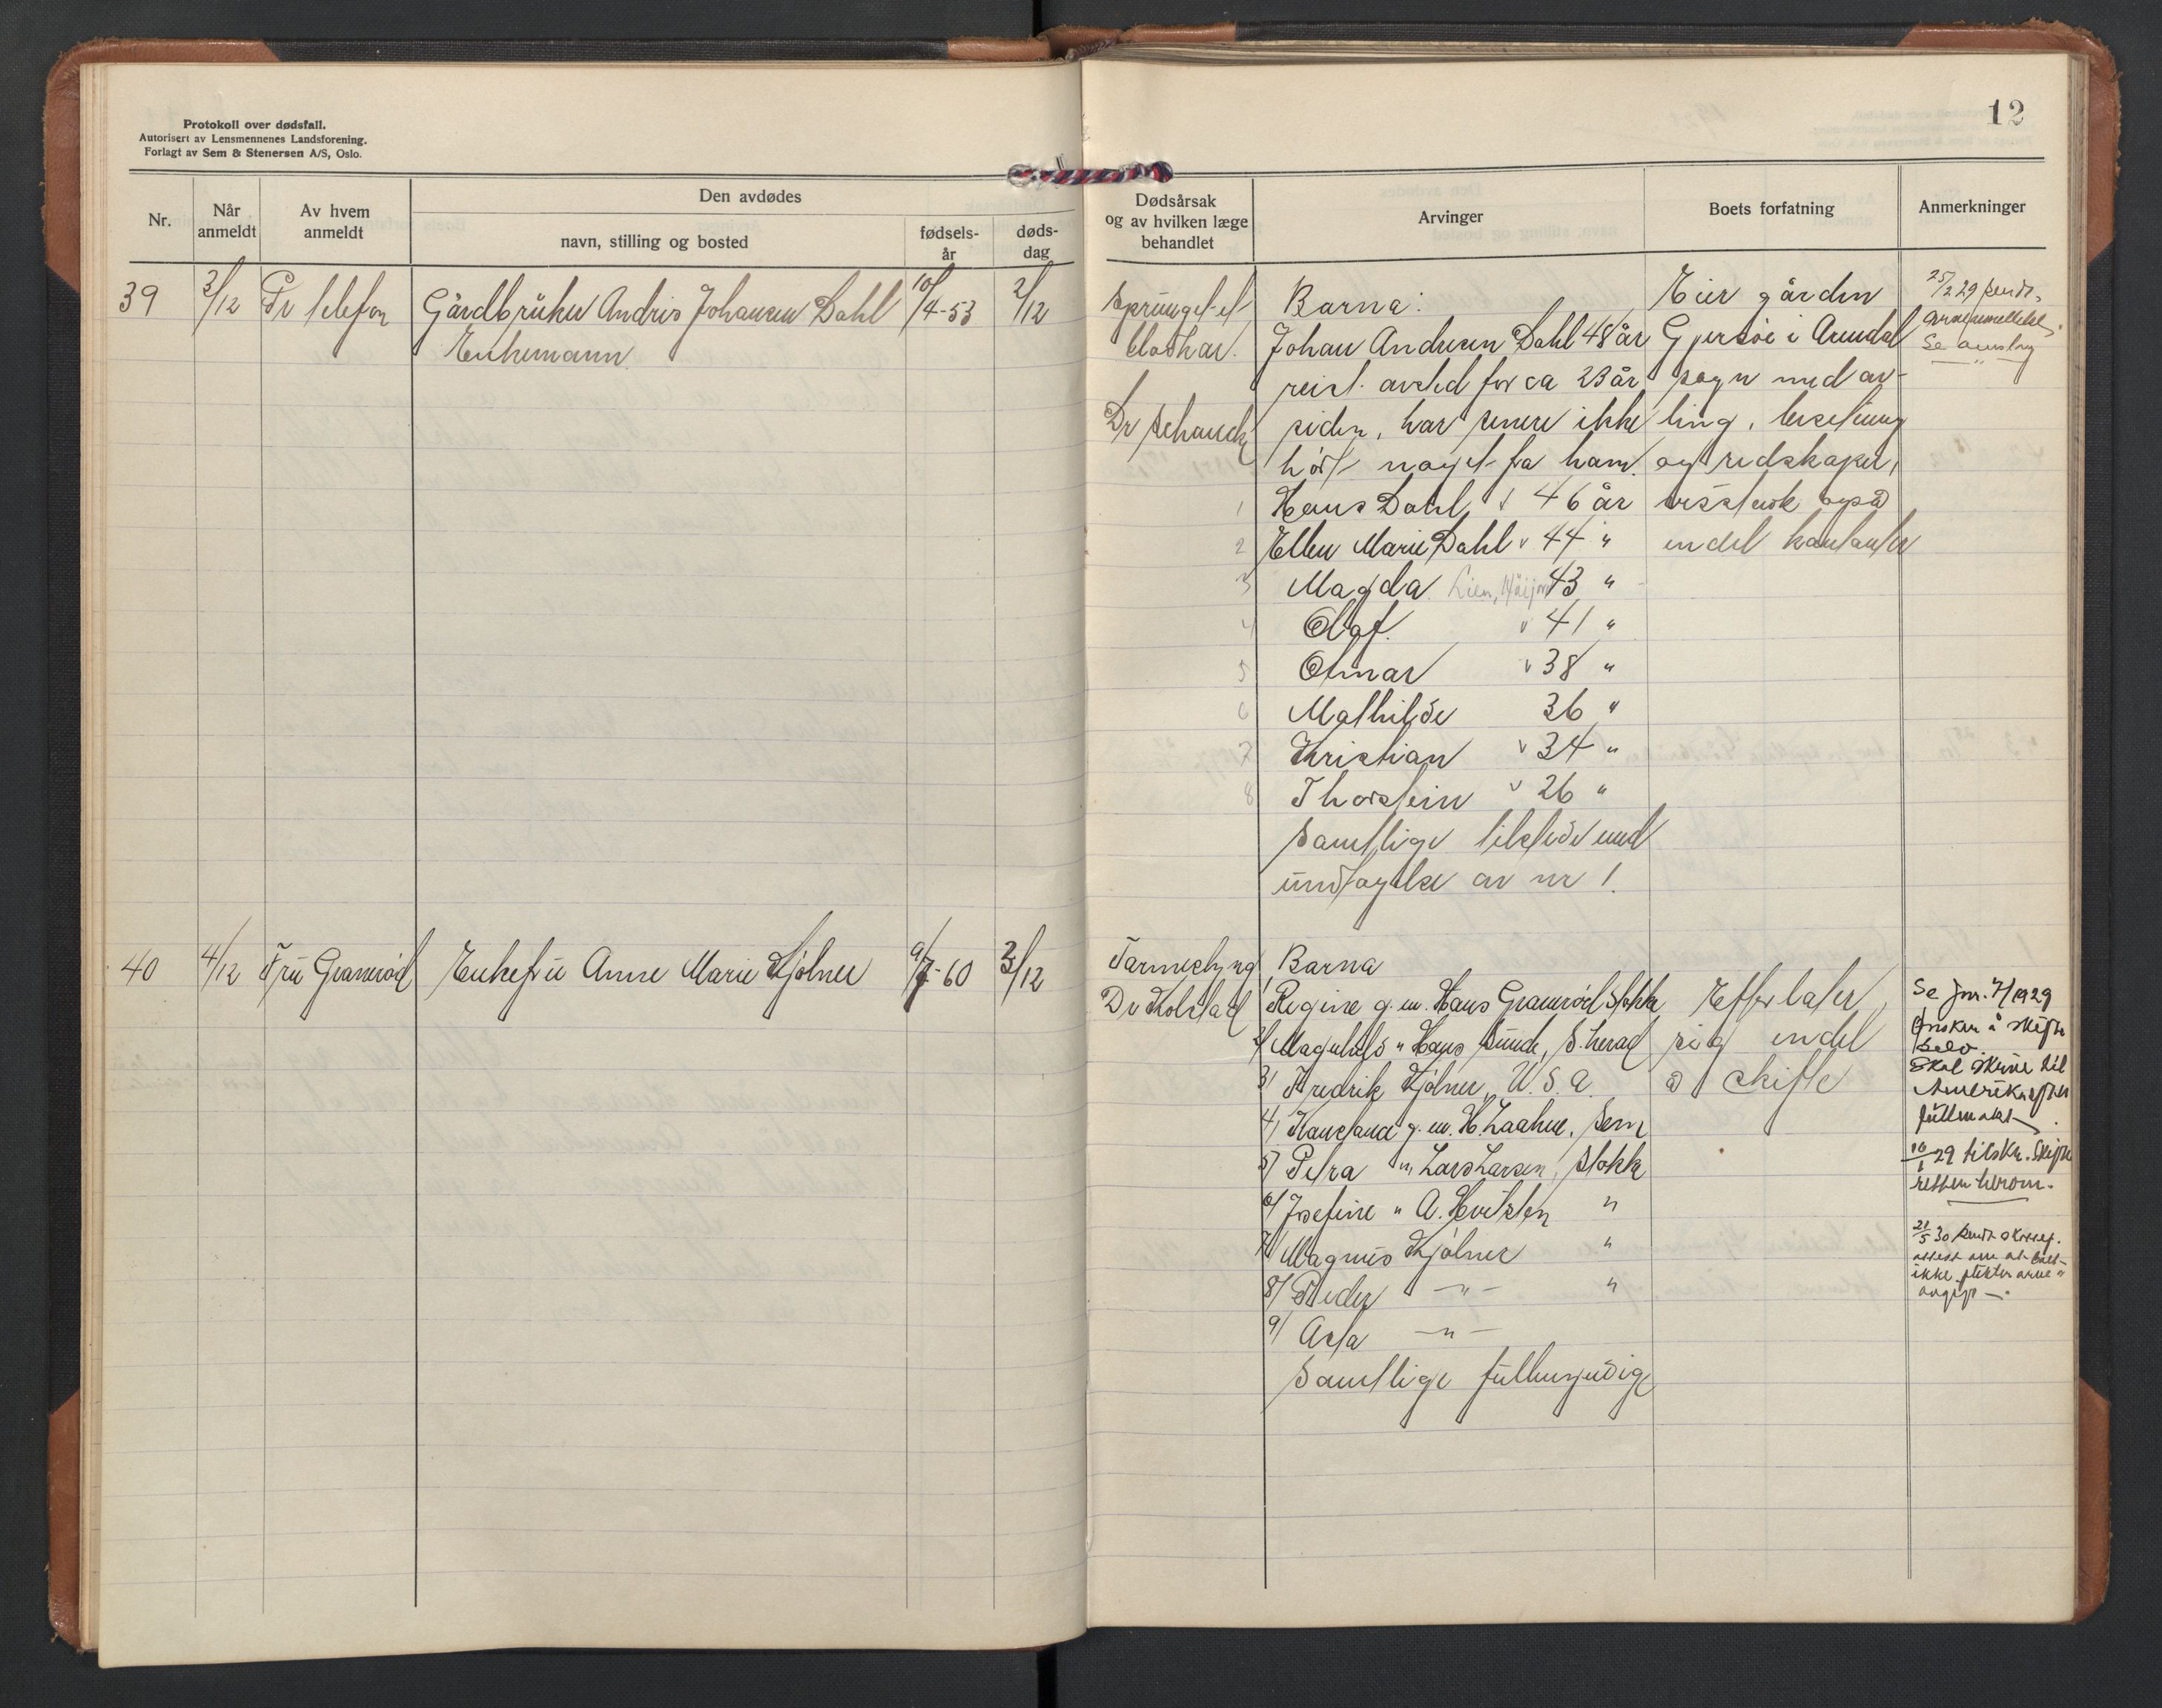 Protokoll over dødsfall.
Autorisert av Lensmennenes Landsforening.
Forlagt av Sem & Stenersen A/S, Oslo.
12
Nr.
Når anmeldt
Av hvem anmeldt
Den avdødes
navn, stilling og bosted
fødsels-år
døds-dag
Dødsårsak og av hvilken læge behandlet
Arvinger
Boets forfatning
Anmerkninger
39
3/12
Pr telefon
Gårdbruker Andris Johansen Dahl
Enkemann
10/4-53
2/12
Sprunget et
blodkar.
Dr Schanche
Barna:
Johan Andresen Dahl 48 år
reist avsted for ca 23 år
siden, har senere ikke
hørt noget fra ham.
1 Hans Dahl v 46 år
2 Ellen Marie Dahl v 44 "
3 Magda Lien, 43 "
4 Olaf. v 41 "
5 Otmar v 38 "
6 Mathilde 36 "
7 Kristian v 34 "
8 Thorstein v 26 "
Samtlige tilstede med
undtagelse av nr 1.
Eier gården
Gjersøe i Arendal
sogn med av-
ling, besetning
og redskaper,
visstnok også
endel kontanter
25/2 29 sendt
arvemeldelse.
Se
40
4/12
Fru Gramrød
Enkefru Anne Marie Kjølner
9/7-60
3/12
Tarmeslyng
Dr Kolstad
Barna
Regine g.m. Hans Gramrød Stokke
2/ Magnhild " Hans Sunde, S.herad
3/ Fredrik Kjølner, U.S.A.
4/ Konstance g.m. H. Zaahne, Sem
5/ Petra " Lars Larsen, Stokke
6/ Josefine " A. Hvitsten "
7/ Magnus Kjølner "
8/ Peder —"— "
9/ Asta —"—
Samtlige fullmyndige
Efterlater
sig endel
å skifte
Se jnr. 7/1929
Ønsker å skifte
selv.
Skal skrive til
Amerika efter
fullmakt
10/1 29 tilskr. Skifte
retten herom.
21/5 30 sendt
attest om at boet
ikke plikter arve
avgift —.